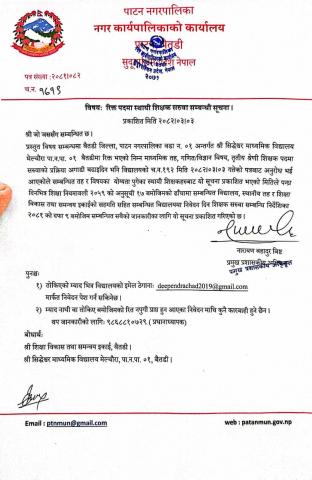 पाटन नगरपालिका
नगर कार्यपालिकाको कार्यालय
पाटन, बैतडी
सुदूरपश्चिम प्रदेश, नेपाल
२०७३
पत्र संख्या :२०८१।०८२
च.न. १६९९
विषयः रिक्त पदमा स्थायी शिक्षक सरुवा सम्बन्धी सूचना।
प्रकाशित मिति २०८२।०३।०३
श्री जो जससँग सम्बन्धित छ।
प्रस्तुत विषय सम्बन्धमा बैतडी जिल्ला, पाटन नगरपालिका वडा न. ०१ अन्तर्गत श्री सिद्धेश्वर माध्यमिक विद्यालय
मेल्चौरा पा.न.पा. ०१ बैतडीमा रिक्त भएको निम्न माध्यमिक तह, गणित/विज्ञान विषय, तृतीय श्रेणी शिक्षक पदमा
सरुवाको प्रक्रिया अगाडी बढाइदिन भनि विद्यालयको च.न.११९ मिति २०८२।०३।०३ गतेको पत्रबाट अनुरोध भई
आएकोले सम्बन्धित तह र विषयका योग्यता पुगेका स्थायी शिक्षकहरुबाट यो सूचना प्रकाशित भएको मितिले पन्ध्र
दिनभित्र शिक्षा नियमावली २०५९ को अनुसूची १७ बमोजिमको ढाँचामा सम्बन्धित विद्यालय, स्थानीय तह र शिक्षा
विकास तथा समन्वय इकाईको सहमति सहित सम्बन्धित विद्यालयमा निवेदन दिन शिक्षक सरुवा सम्बन्धि निर्देशिका
२०८१ को दफा ९ बमोजिम सम्बन्धित सबैको जानकारीका लागि यो सूचना प्रकाशित गरिएको छ।
नारायण बहादुर बिष्ट
प्रमुख प्रशासकीय अधिकृत
प्रमुख प्रशासकीय अधिकृत
पुनश्चः
१) तोकिएको म्याद भित्र विद्यालयको इमेल ठेगानाः deependrachad2019@gmail.com
मार्फत निवेदन पेश गर्न सकिनेछ।
२) म्याद नाघी वा तोकिए बमोजिमको रित नपुगी प्राप्त हुन आएका निवेदन माथि कुनै कारबाही हुने छैन।
थप जानकारीको लागिः ९८६८८१०७२९ (प्रधानाध्यापक)
बोधार्थः
श्री शिक्षा विकास तथा समन्वय इकाई, बैतडी।
श्री सिद्धेश्वर माध्यमिक विद्यालय मेल्चौरा, पा.न.पा. ०१, बैतडी।
Email : ptnmun@gmail.com
web : patanmun.gov.np